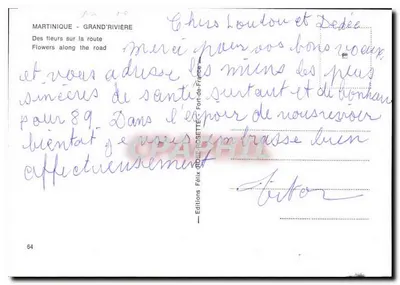 MARTINIQUE - GRAND'RIVIERE
Des fleurs sur la route
Flowers along the road
Chers Loulou et Dédée
Merci pour vos bons voeux
et vous adresse les miens les plus
sincères de santé surtout et de bonheur
pour 89. Dans l'espoir de nous revoir
bientôt je vous embrasse bien
affectueusement
Editions Félix ROSE-ROSETTE - Fort-de-France
64